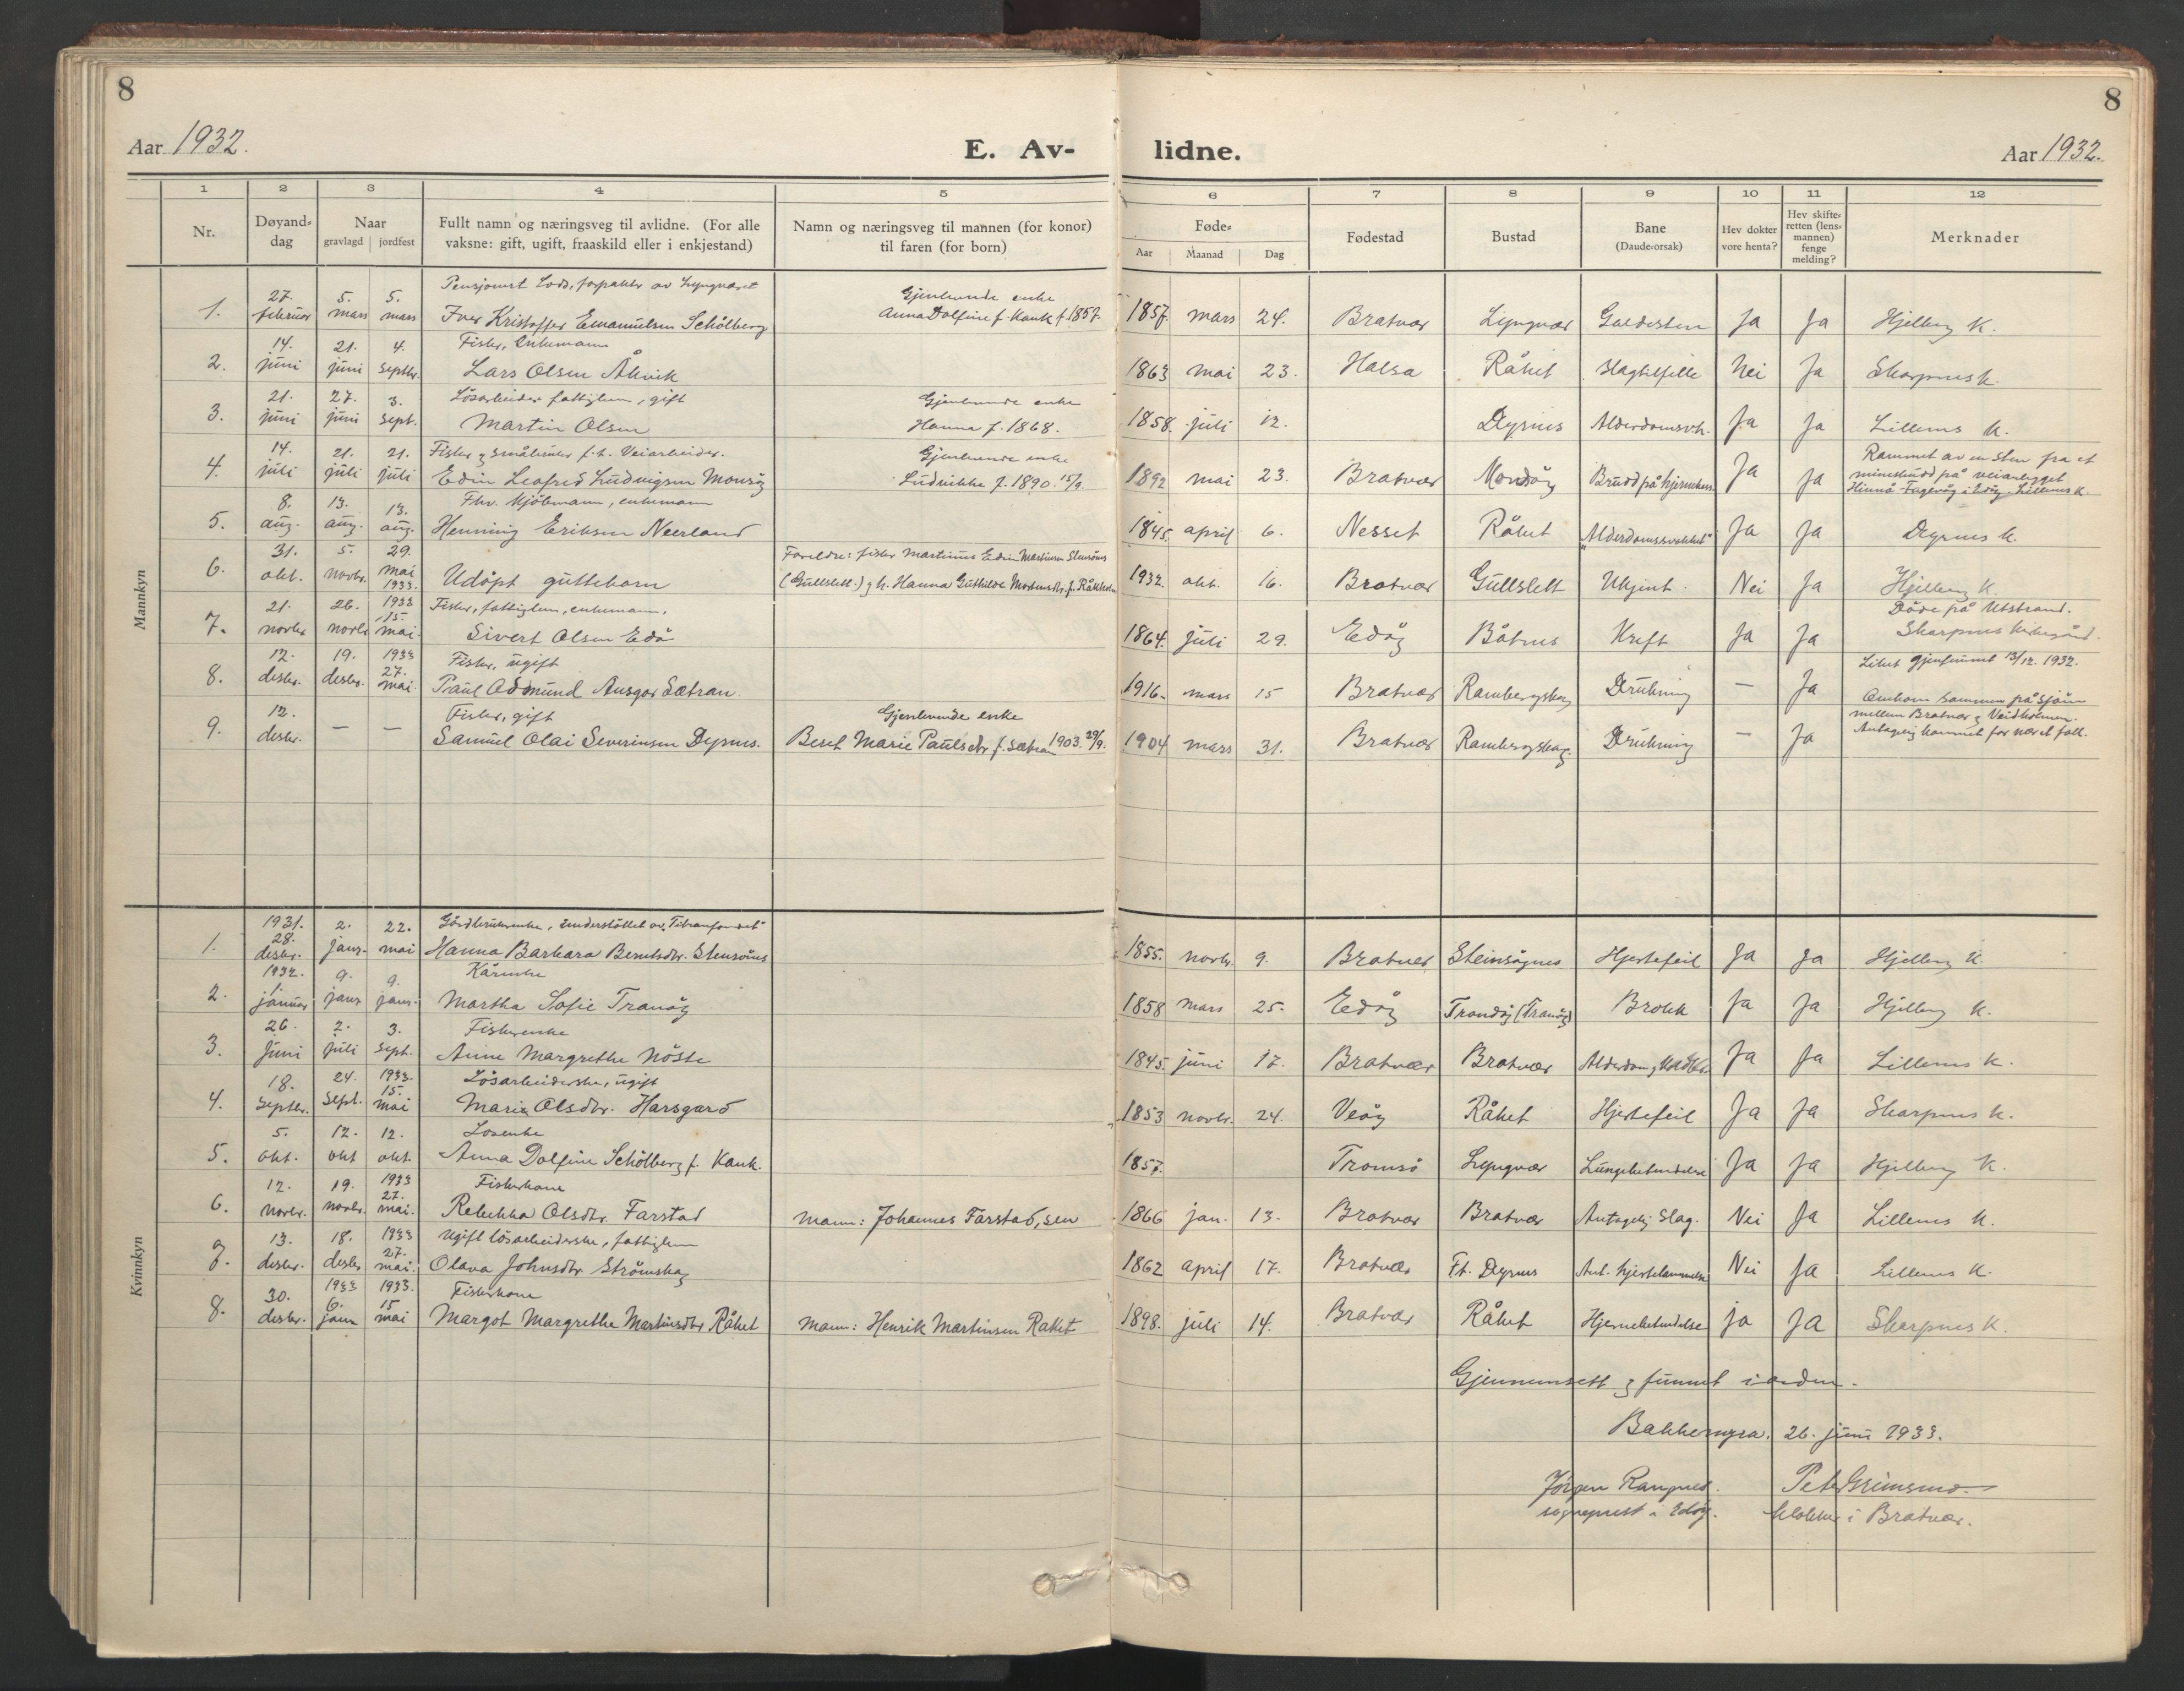 8
8
Aar 1932.
E. Av-
lidne.
Aar 1932.
1 2 3 4 5 6 7 8 9 10 11 12
Nr.
Døyand-dag
Naar
gravlagd jordfest
Fullt namn og næringsveg til avlidne. (For alle
vaksne: gift, ugift, fraaskild eller i enkjestand)
Namn og næringsveg til mannen (for konor)
til faren (for born)
Føde-
Aar Maanad Dag
Fødestad
Bustad
Bane
(Daude-orsak)
Hev dokter
vore henta?
Hev skifte-
retten (lens-
mannen)
fenge
melding?
Merknader
Mannkyn
1. 27. februar 5. mars 5. mars Pensjonert Lods, forpakter av Lyngværet
Iver Kristoffer Emanuelsen Schölberg Gjenlevende enke Anna Dolfine f. Kauk f. 1857. 1857. mars 24. Bratvær Lyngvær Galdesten Ja Ja Hjelberg K.
2. 14. juni 21. juni 4. septbr. Fisker, enkemann
Lars Olsen Åkvik 1863 mai 23. Halsa Råket Slagtilfelle Nei Ja Skarpnes k.
3. 21. juni 27. juni 3. sept. Lösarbeider fattiglem, gift
Martin Olsen Gjenlevende enke Hanna f. 1868. 1858. juli 12. Dyrnes Alderdomsvk. Ja Ja Lillenes K.
4. 14. juli 21. juli 21. juli Fisker og småbruker f.t. Veiarbeider.
Edin Leofred Ludvigsen Monsöy Gjenlevende enke Ludvikke f. 1890. 15/9. 1892 mai 23. Bratvær Mondöy Brudd på hjernekass. Ja Ja Rammet av en sten fra et
mineskudd på veianlegget
Hinnå-Fagevåg i Edöy. Lillenes K.
5. 8. aug. 13. aug. 13. aug. Fhv. Kjöbmann, enkemann
Henning Eriksen Neerland 1845. april 6. Nesset Råket "Alderdomssvakhet" Ja Ja Dyrnes K.
6. 31. okt. 5. novbr. 29. mai 1933. Udöpt guttebarn Foreldre: fisker Martinus Edin Martinsen Stensönes
(Gullslett.) og h. Hanna Guthilde Mortensdtr. f. Råkholm 1932. okt. 16. Bratvær Gullslett Ukjent. Nei Ja Hjelberg K.
7. 21. novbr 26. novbr 1933 15. mai. Fisker, fattiglem, enkemann.
Sivert Olsen Edö 1864. juli 29. Edöy Båtnes Kreft Ja Ja Döde på Utstrand.
Skarpnes kirkegård.
8. 12. desbr. 19. desbr. 1933 27. mai Fisker, ugift
Paul Asmund Ansgar Sætran 1916. mars 15 Bratvær Rambergskag Drukning — Ja Liket gjenfunnet 13/12. 1932.
9. 12. desbr. — — Fisker, gift
Samuel Olai Severinsen Dyrnes. Gjenlevende enke
Beret Marie Paulsdtr f. Sætran 1903. 29/9. 1904 mars 31. Bratvær Rambergskag. Drukning — Ja Omkom sammen på sjöen
mellem Bratvær og Veidholmen.
Antagelig kommet for nær et fall.
Kvinnkyn
1. 1931. 28. desbr. 2. janr. 22. mai Gårdbrukerenke, understöttet av "Titranfondet"
Hanna Barbara Berntsdtr. Stensönes 1855. novbr. 9. Bratvær Steinsögnes Hjertefeil Ja Ja Hjelberg K.
2. 1932. 1. januar 9. janr 9. janr. Kårenke
Martha Sofie Tranöy 1858 mars 25. Edöy Trondöy (Tranöy) Brokk Ja Ja Hjelberg K.
3. 26. Juni 2. juli 3. sept. Fiskerenke
Anne Margrethe Nöste 1845. juni 17. Bratvær Bratvær Ja Ja Lillenes K.
4. 18. septbr. 24. sept. 1933. 15. mai Lösarbeiderske, ugift
Marie Olsdtr. Harsgard 1853 novbr. 24. Veöy Råket Hjertefeil Ja Ja Skarpnes K.
5. 5. okt. 12. okt 12. okt. Losenke
Anna Dolfine Schölberg f. Kauk. 1857. Tromsö Lyngvær Lungebetendelse Ja Ja Hjelberg K.
6. 12. novbr. 19. novbr. 1933 27. mai. Fiskerkone
Rebekka Olsdtr. Farstad Mann: Johannes Farstad, sen 1866 jan. 13. Bratvær Bratvær Antagelig Slag. Nei Ja Lillenes K.
7. 13. desbr. 18. desbr 1933 27. mai. Ugift lösarbeiderske, fattiglem
Olava Johnsdtr. Strömskag 1862 april 17. Bratvær F.t. Dyrnes Ant. hjertelammelse Nei Ja Lillenes K.
8. 30. desbr. 1933 6. janr 1933. 15 mai Fiskerkone
Margot Margrethe Martinsdtr Råket Mann: Henrik Martinsen Raket 1898. juli 14. Bratvær Råket Hjernebetendelse ja Ja Skarpnes K.
Gjennemsett og funnet i orden.
Bakkemyra. 26. juni 1933.
Jörgen Rangnes. Peter Grimsmo.
sogneprest i Edöy. klokker i Bratvær.